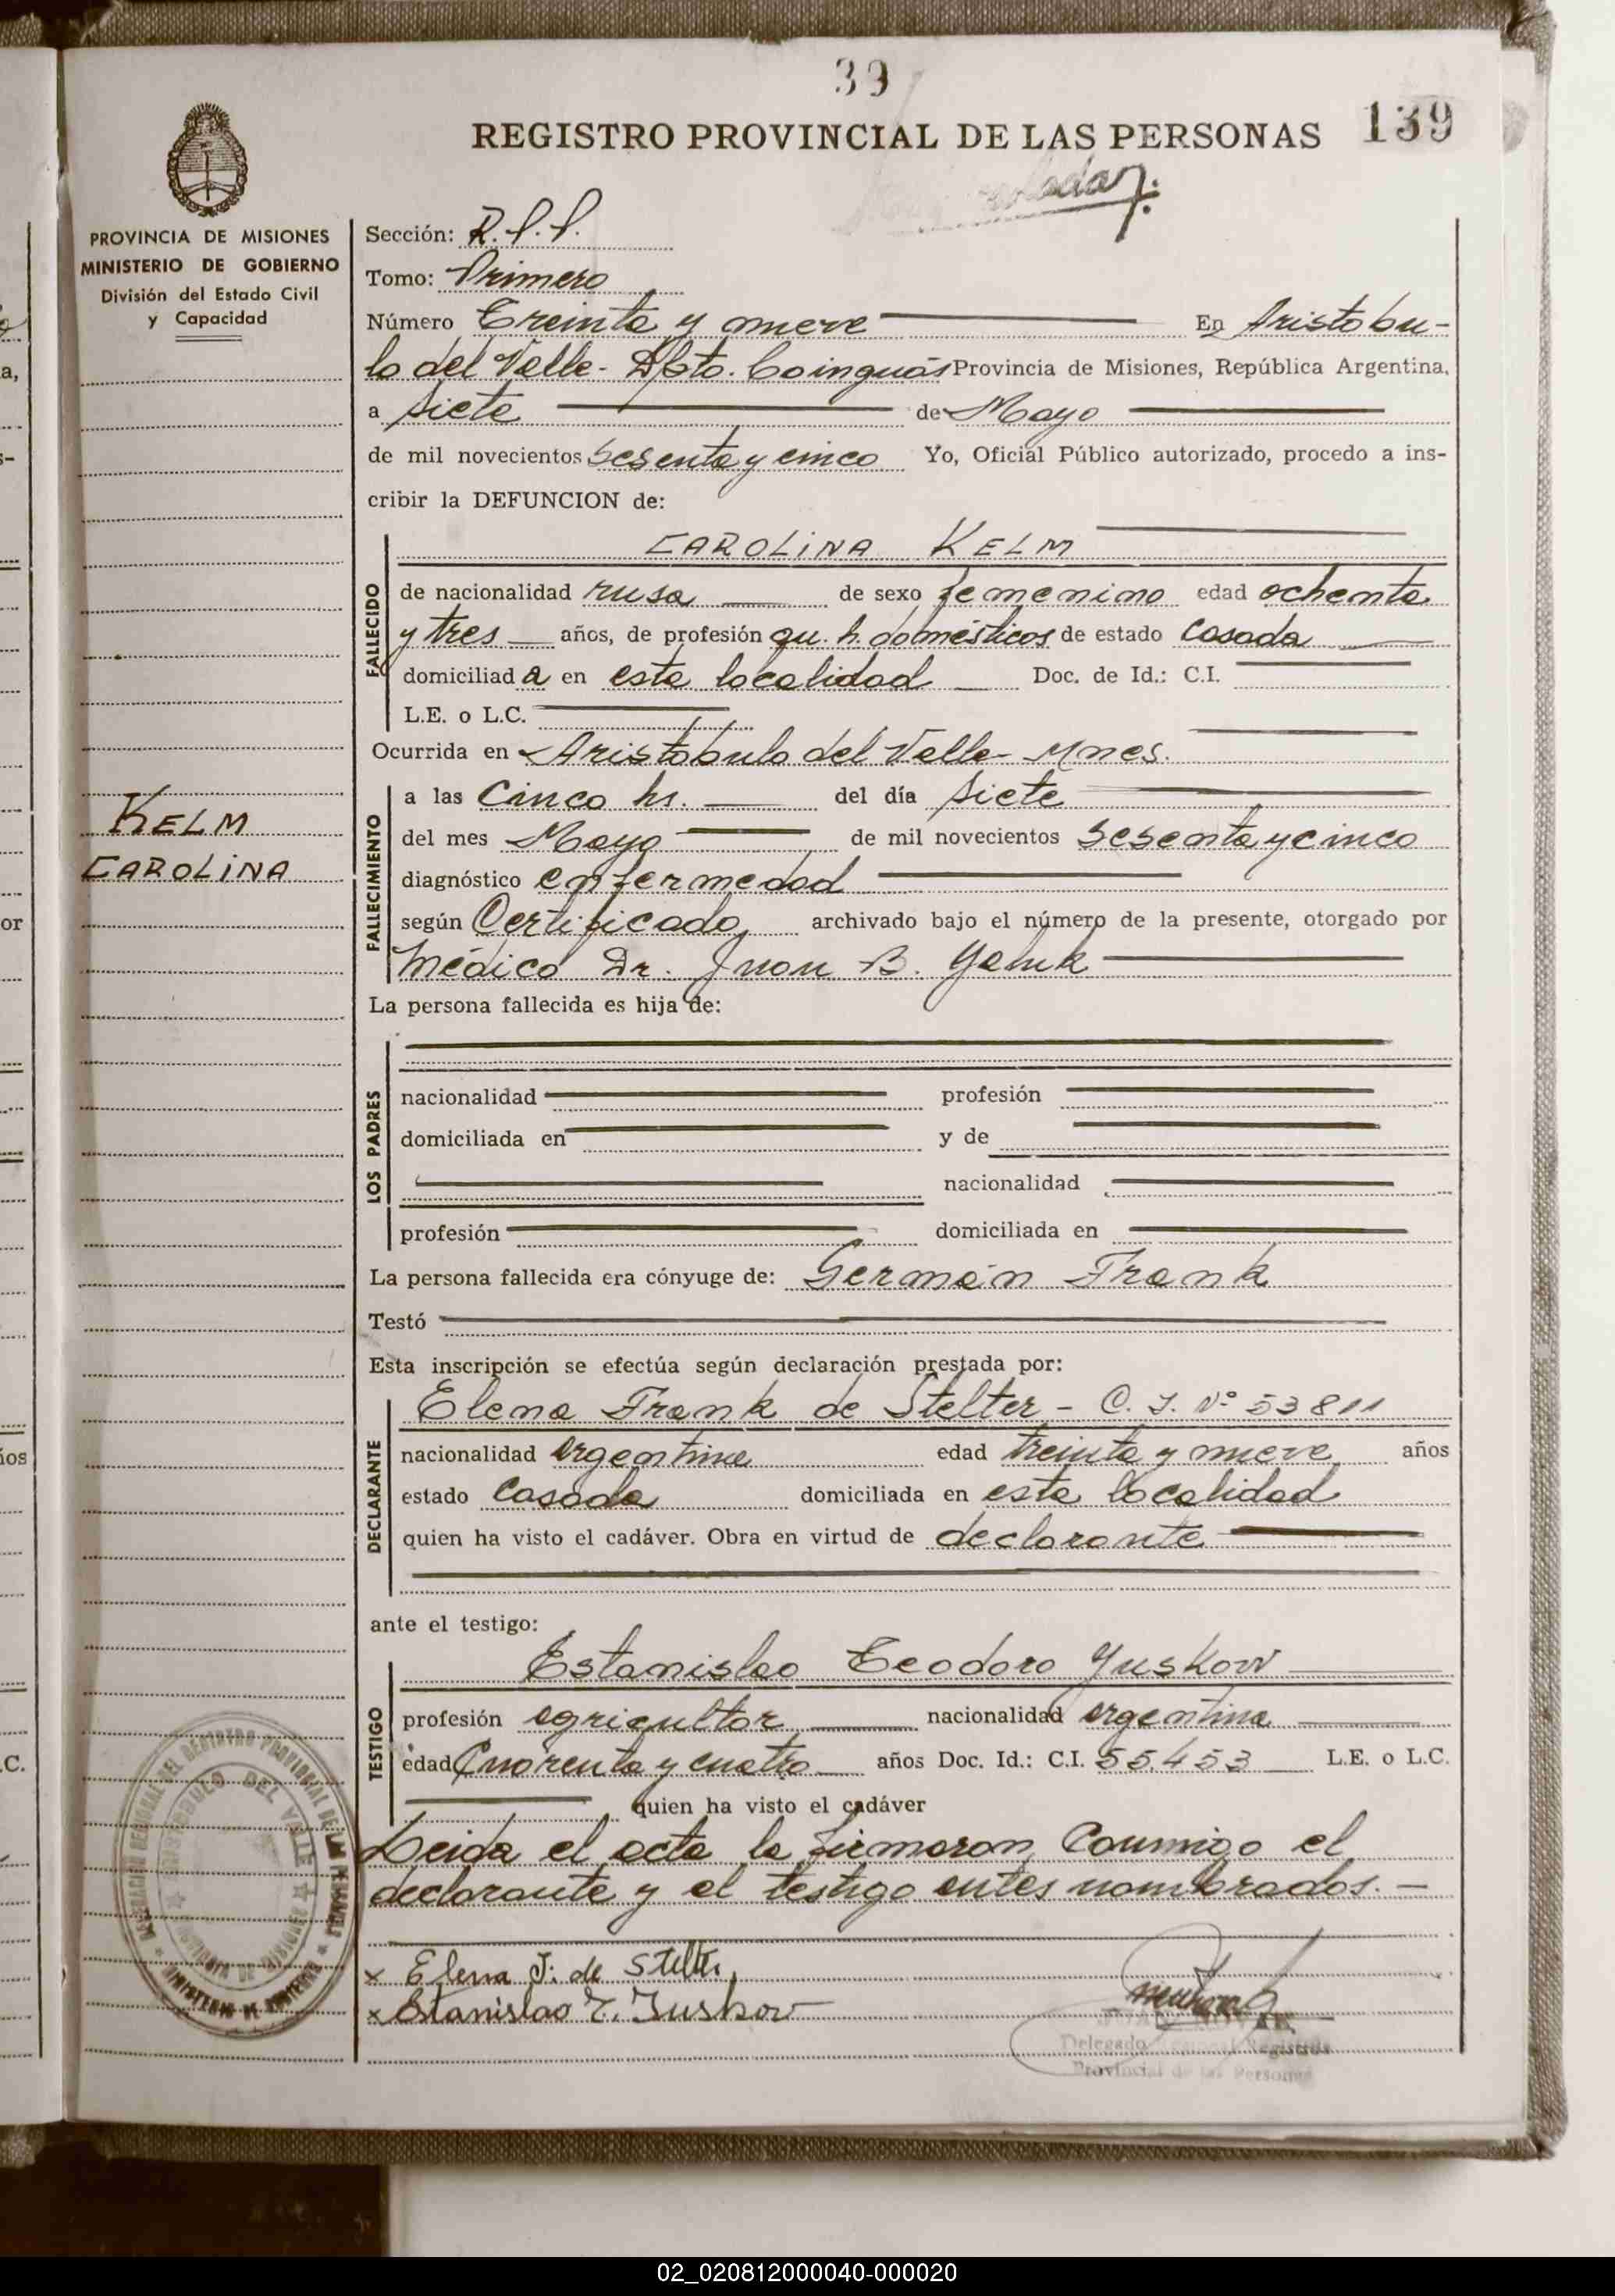 39
139
REGISTRO PROVINCIAL DE LAS PERSONAS
PROVINCIA DE MISIONES
MINISTERIO DE GOBIERNO
División del Estado Civil
y Capacidad
Sección: R.P.P.
Tomo: Primero
Número Treinta y nueve En Aristóbu-
lo del Valle - Dpto. Cainguás Provincia de Misiones, República Argentina,
a siete de Mayo
de mil novecientos sesenta y cinco Yo, Oficial Público autorizado, procedo a ins-
cribir la DEFUNCION de:
CAROLINA KELM
FALLECIDO
de nacionalidad rusa de sexo femenino edad ochenta
y tres años, de profesión qu. h. domésticos de estado casada
domiciliad a en esta localidad Doc. de Id.: C.I.
L.E. o L.C.
Ocurrida en Aristóbulo del Valle - Mnes.
KELM
CAROLINA
FALLECIMIENTO
a las Cinco hs. del día siete
del mes Mayo de mil novecientos sesenta y cinco
diagnóstico enfermedad
según Certificado archivado bajo el número de la presente, otorgado por
Médico Dr. Juan B.
La persona fallecida es hija de:
LOS PADRES
nacionalidad profesión
domiciliada en y de
nacionalidad
profesión domiciliada en
La persona fallecida era cónyuge de: Germán Frank
Testó
Esta inscripción se efectúa según declaración prestada por:
DECLARANTE
Elena Frank de Stelter - C. I. Nº 53811
nacionalidad argentina edad treinta y nueve años
estado Casada domiciliada en esta localidad
quien ha visto el cadáver. Obra en virtud de declarante
ante el testigo:
TESTIGO
Estanislao Teodoro Yuskow
profesión agricultor nacionalidad argentina
edad Cuarenta y cuatro años Doc. Id.: C.I. 55.453 L.E. o L.C.
quien ha visto el cadáver
Leida el acta la firmaron Conmigo el
declarante y el testigo antes nombrados. -
x Elena F. de Stelter
x Estanislao T. Juskow
Delegado Registro
Provincial de las Personas
ARISTOBULO DEL VALLE
MINISTERIO DE GOBIERNO
02_020812000040-000020